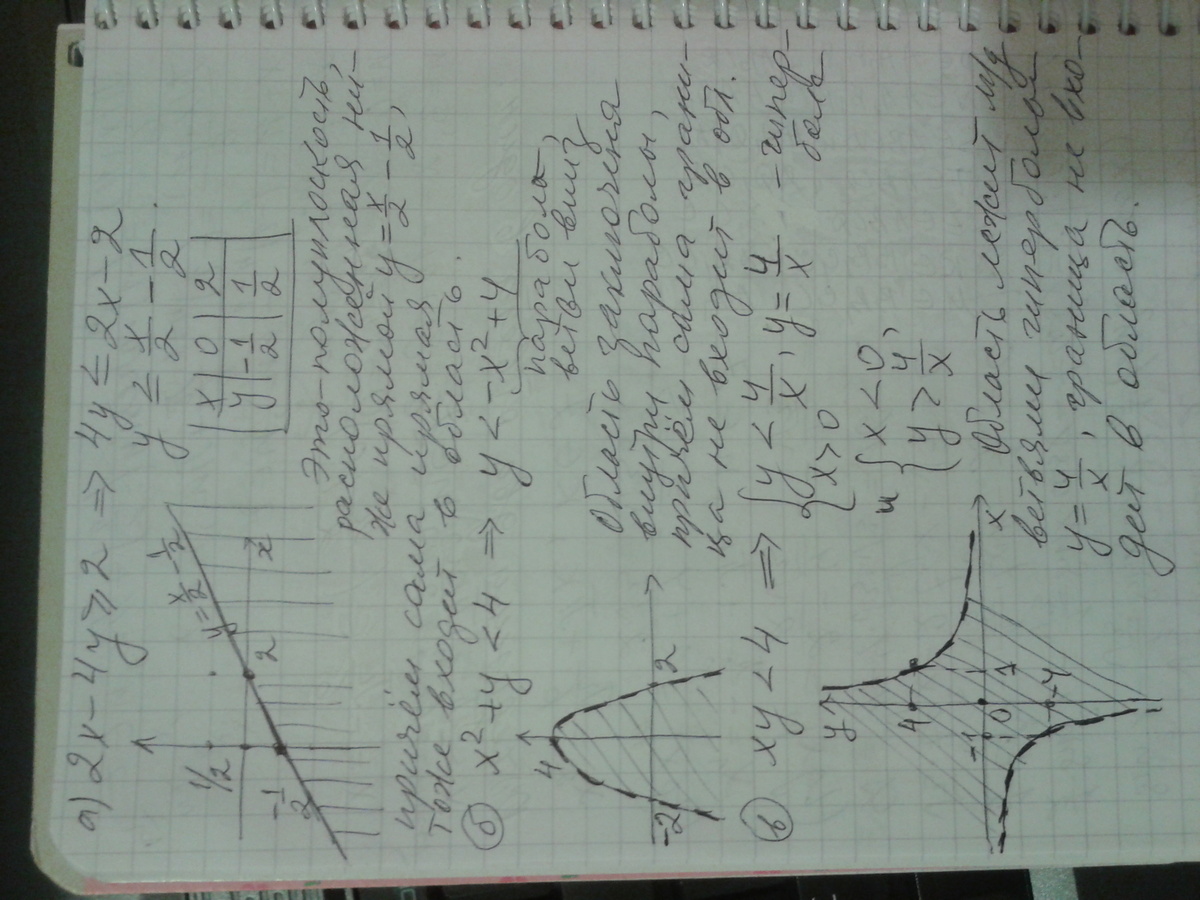 а) 2x-4y⩾2 ⇒ 4y≤2x-2
y ≤ x/2 - 1/2.
x | 0 | 2
y | -1/2 | 1/2
1/2
-1/2
2
x
y=x/2-1/2
Это-полуплоскость,
расположенная ни-
же прямой y=x/2-1/2,
причём сама прямая
тоже входит в область.
б) x²+y<4 ⇒ y<-x²+4
парабола,
ветви вниз
4
-2
2
Область заключена
внутри параболы,
причём сама грани-
ца не входит в обл.
в) xy<4 ⇒ {y<4/x, y=4/x - гипер-
бола
x>0
и {x<0,
y>4/x
y
4
-1
0
1
-4
x
Область лежит м/д
ветвями гиперболой
y=4/x, граница не вхо-
дит в область.